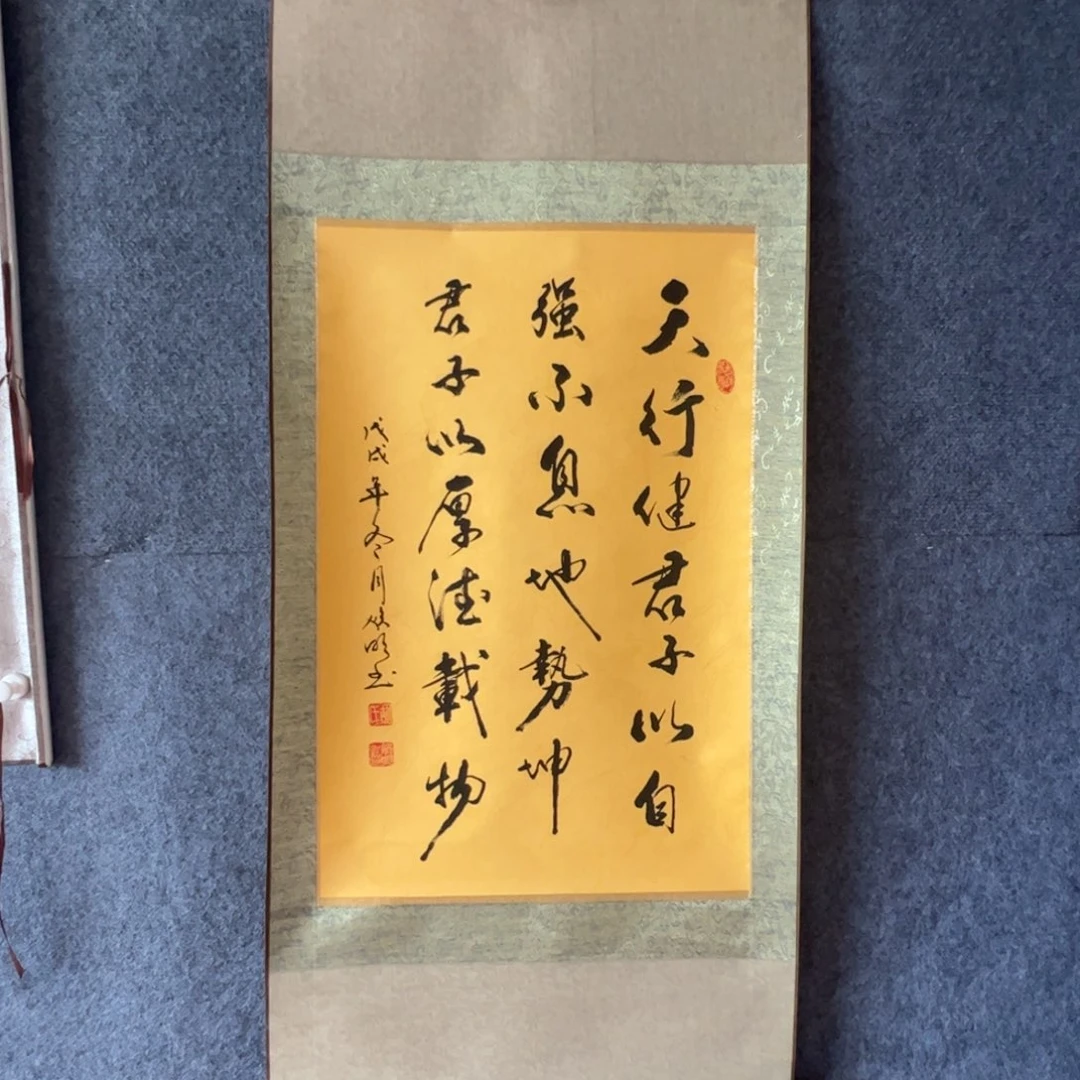 天行健君子以自
强不息地勢坤
君子以厚德載物
戊戌年冬月俊明书